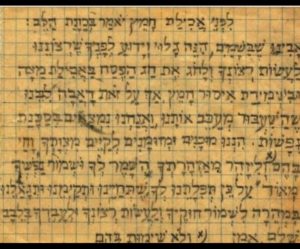 לפני אכילת חמץ יאמר בכונת הלב:
אבינו שבשמים, הנה גלוי וידוע לפניך שרצוננו
לעשות רצונך ולחוג את חג הפסח באכילת מצה
ובשמירת איסור חמץ אך על זאת דאבה לבנו
שהשעבוד מעכב אותנו ואנחנו נמצאים בסכנת
נפשות. הננו מוכנים ומזומנים לקיים מצותך וחי
בהם וליזהר מאזהרתך השמר לך ושמור נפשך
מאוד על כן תפלתנו לך שתחיינו ותקימנו ותגאלנו
במהרה לשמור חוקיך ולעשות רצונך ולעבדך בלבב
שלם אמן ולא שימות בהם